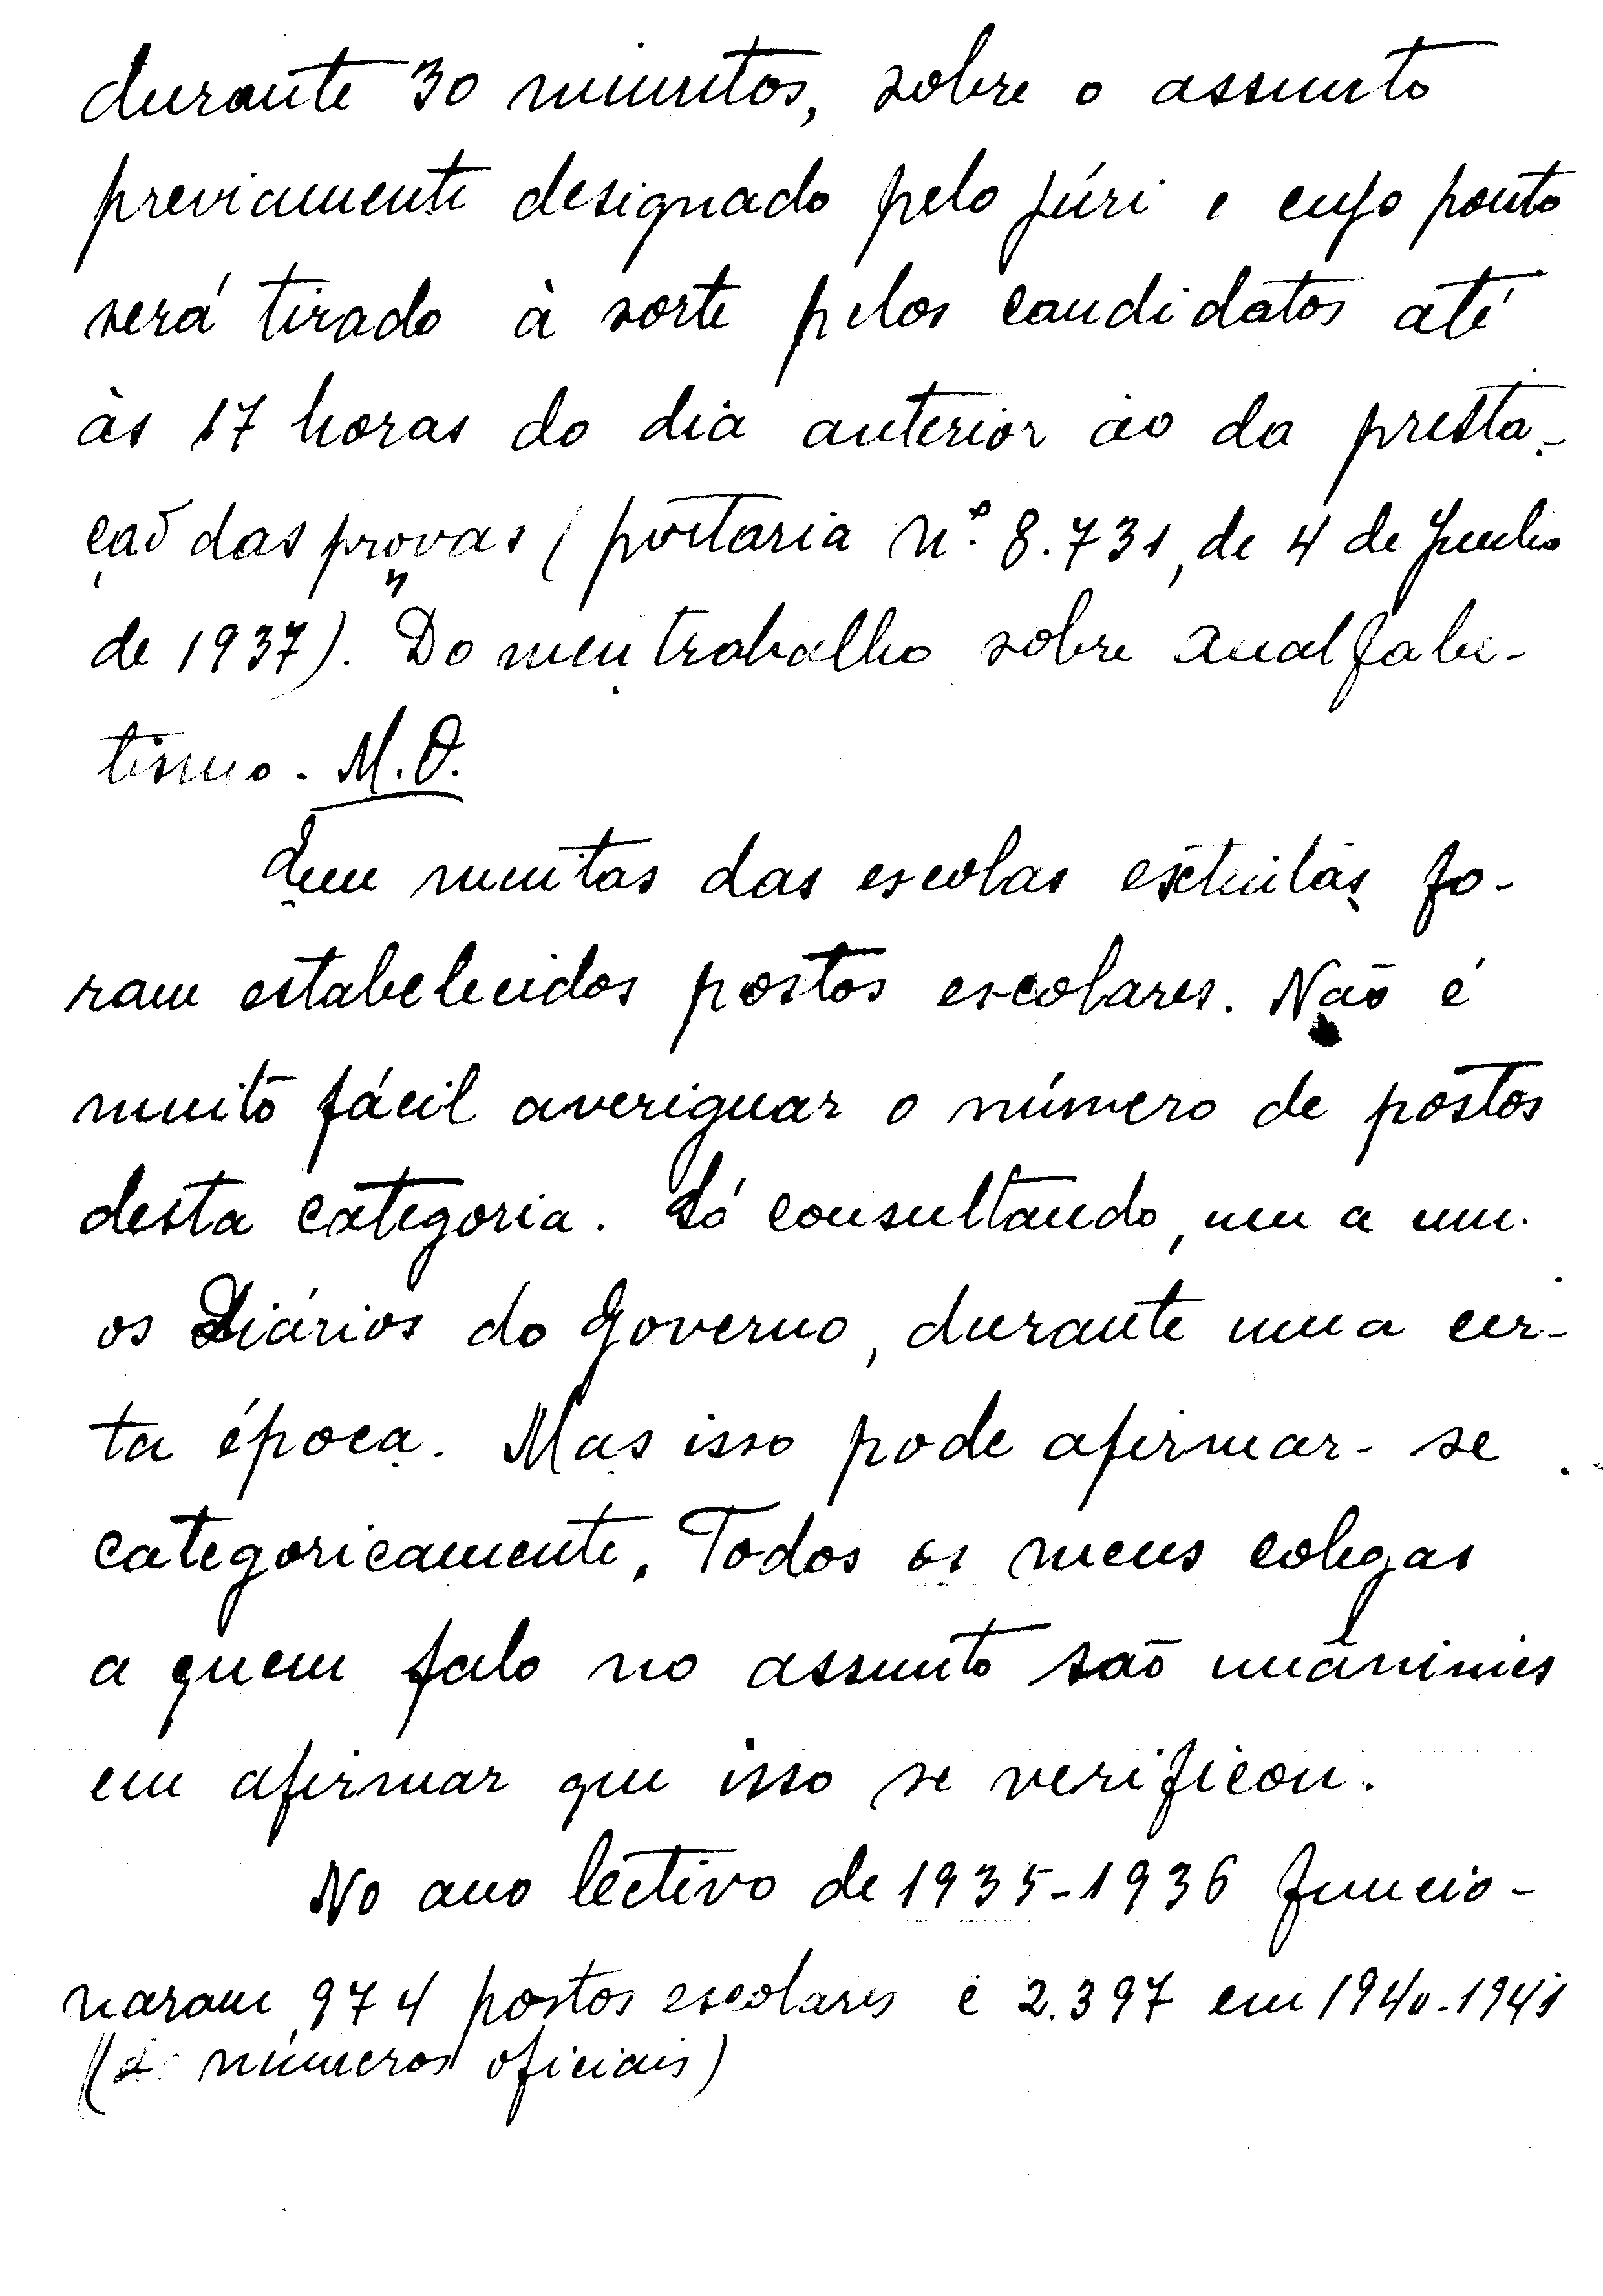 durante 30 minutos, sobre o assunto
previamente designado pelo júri e cujo ponto
será tirado à sorte pelos candidatos até
às 17 horas do dia anterior ao da presta-
ção das provas (portaria n.º 8.731, de 4 de Junho
de 1937)." Do meu trabalho sobre analfabe-
tismo. M.O.
Em muitas das escolas extintas fo-
ram estabelecidos postos escolares. Não é
muito fácil averiguar o número de postos
desta categoria. Só consultando, um a um.
os Diários do Governo, durante uma cer-
ta época. Mas isso pode afirmar-se
categoricamente. Todos os meus colegas
a quem falo no assunto são unânimes
em afirmar que isso se verificou.
No ano lectivo de 1935-1936 funcio-
naram 974 postos escolares e 2.397 em 1940-1941
(de números oficiais)